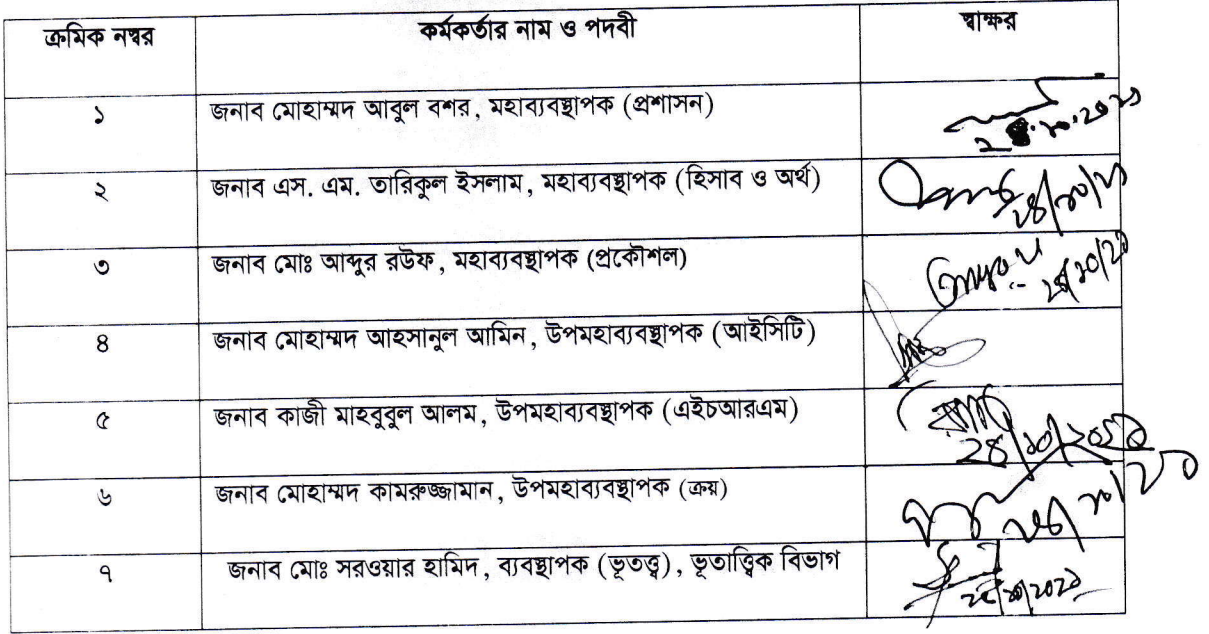 ক্রমিক নম্বর কর্মকর্তার নাম ও পদবী স্বাক্ষর
১ জনাব মোহাম্মদ আবুল বশর, মহাব্যবস্থাপক (প্রশাসন)
২ জনাব এস. এম. তারিকুল ইসলাম, মহাব্যবস্থাপক (হিসাব ও অর্থ)
৩ জনাব মোঃ আব্দুর রউফ, মহাব্যবস্থাপক (প্রকৌশল)
৪ জনাব মোহাম্মদ আহসানুল আমিন, উপমহাব্যবস্থাপক (আইসিটি)
৫ জনাব কাজী মাহবুবুল আলম, উপমহাব্যবস্থাপক (এইচআরএম)
৬ জনাব মোহাম্মদ কামরুজ্জামান, উপমহাব্যবস্থাপক (ক্রয়)
৭ জনাব মোঃ সরওয়ার হামিদ, ব্যবস্থাপক (ভূতত্ত্ব), ভূতাত্ত্বিক বিভাগ